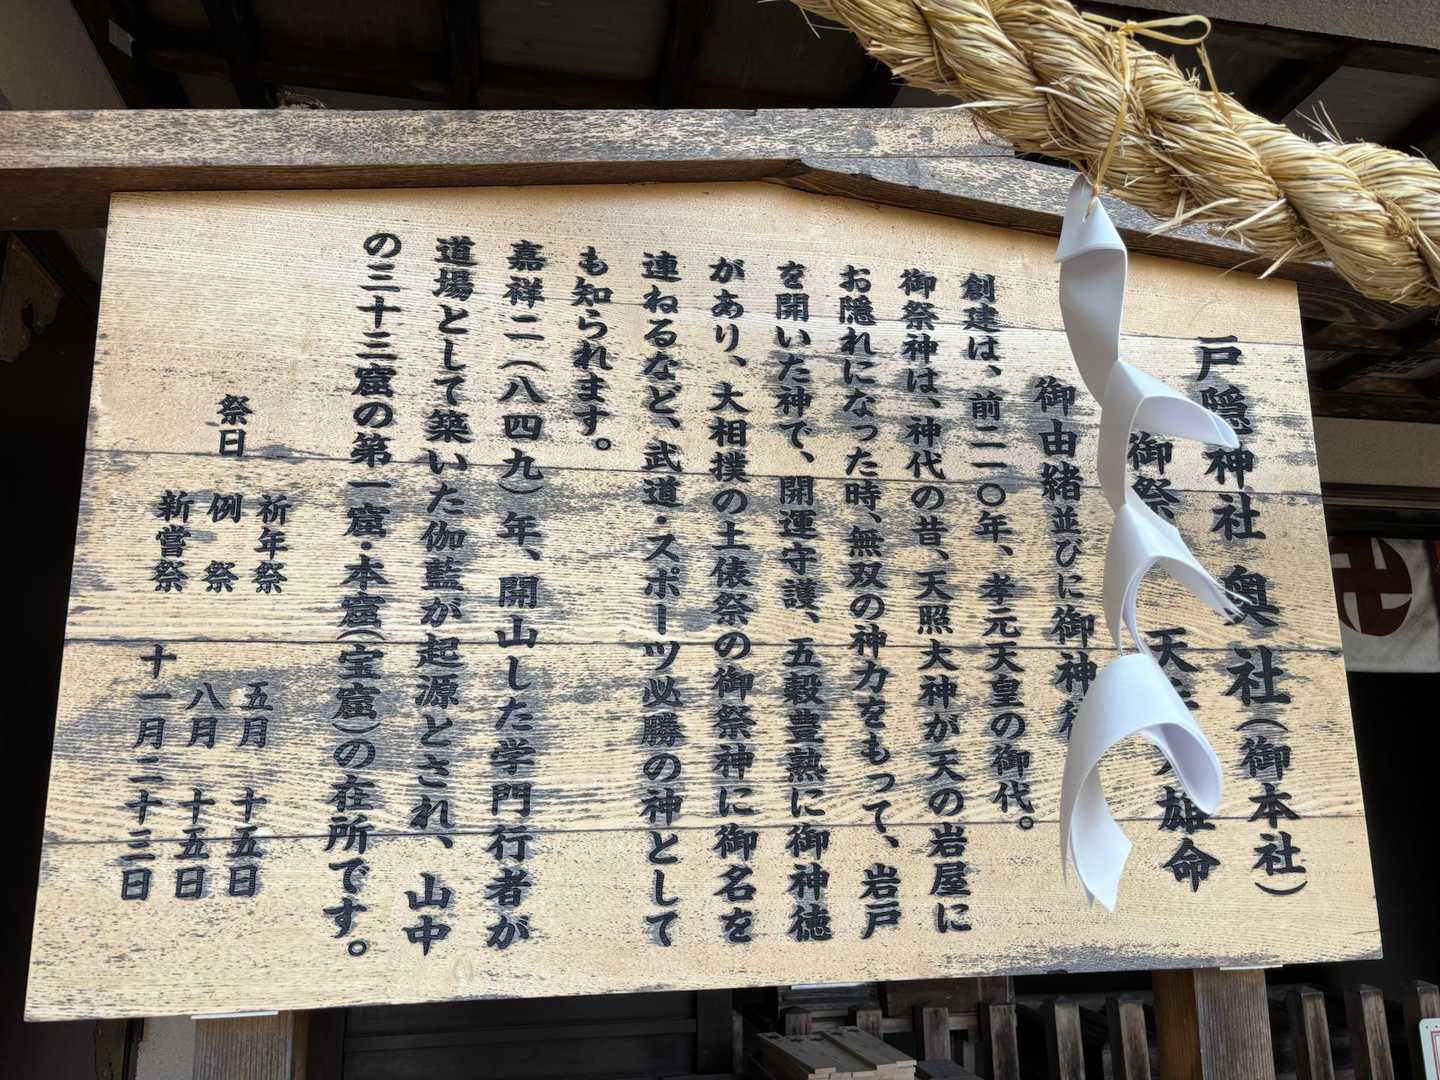 戸隠神社 奥社(御本社)
御祭 天 雄命
御由緒並びに御神
創建は、前二一〇年、孝元天皇の御代。
御祭神は、神代の昔、天照大神が天の岩屋に
お隠れになった時、無双の神力をもって、岩戸
を開いた神で、開運守護、五穀豊熟に御神徳
があり、大相撲の土俵祭の御祭神に御名を
連ねるなど、武道・スポーツ必勝の神として
も知られます。
嘉祥二(八四九)年、開山した学門行者が
道場として築いた伽藍が起源とされ、山中
の三十三窟の第一窟・本窟(宝窟)の在所です。
祭日
祈年祭 五月 十五日
例祭 八月 十五日
新嘗祭 十一月二十三日